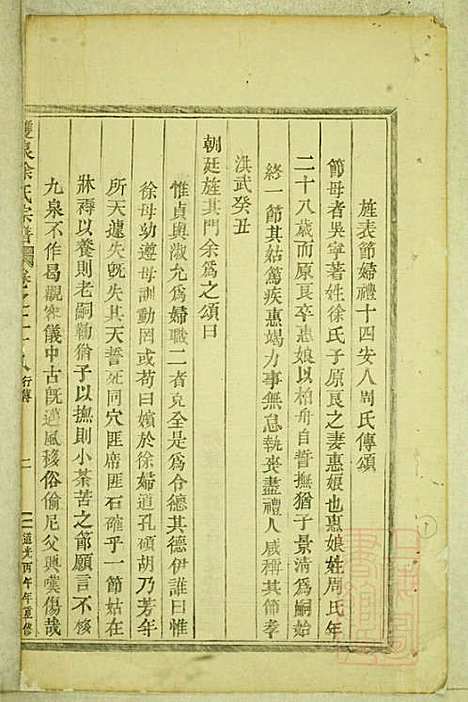 旌表節婦禮十四安人周氏傳頌
節母者吳寧著姓徐氏子原良之妻惠娘也惠娘姓周氏年
二十八歲而原良卒惠娘以柏舟自誓撫猶子景清爲嗣始
終一節其姑篤疾惠竭力事無怠執喪盡禮人咸稱其節孝
洪武癸丑
朝廷旌其門余爲之頌曰
惟貞與淑允爲婦職二者克全是爲令德其德伊誰曰惟
徐母幼遵母訓動罔或苟曰嬪於徐婦道孔碩胡乃芳年
所天遽失旣失其天誓死同穴匪席匪石確乎一節姑在
牀褥以養則老嗣猶子以撫則小荼苦之節願言不
九泉不作曷觀儀中古旣邁風移俗偷尼父興嘆傷哉
雙泉徐氏宗譜 卷之二十 行傳
道光丙午年重修